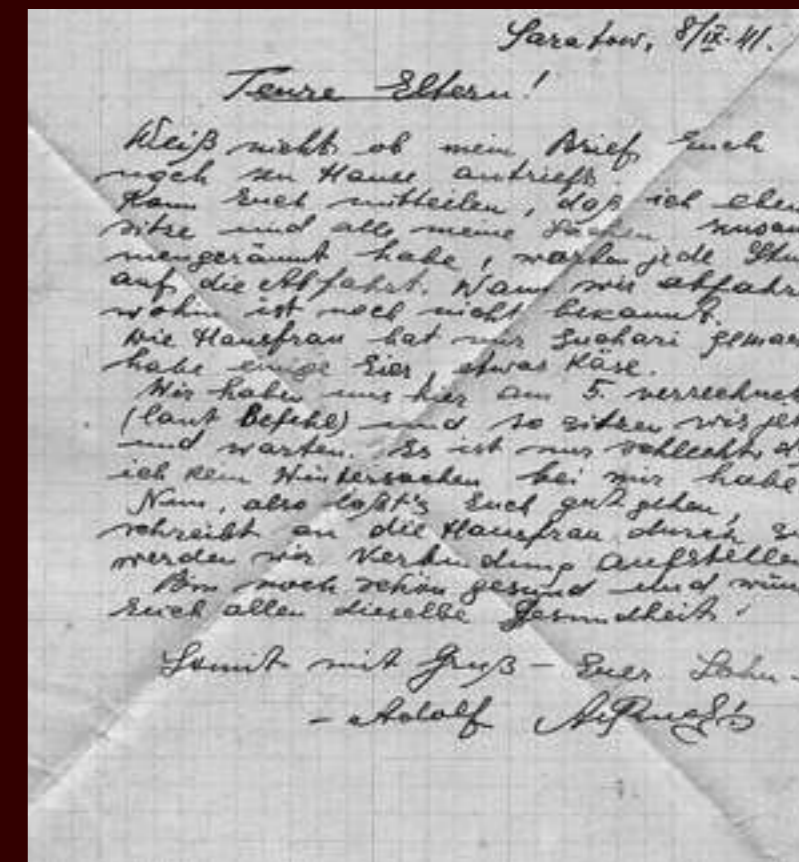 Saratow, 8/IX. 41.
Teure Eltern!
Weiß nicht ob mein Brief Euch
noch zu Hause antrieft.
Kann Euch mitteilen, daß ich eben
sitze und alle meine Sachen zusam
mengeräumt habe, warten jede Stun
auf die Abfahrt. Wann wir abfahr
wohin ist noch nicht bekannt.
Die Hausfrau hat mir Suchari gemac
habe einige Eier, etwas Käse.
Wir haben uns hier am 5. verrechnet
(laut Befehl) und so sitzen wir jet
und warten. Es ist nur schlecht d
ich kein Wintersachen bei mir habe
Nun, also laßt's Euch gut gehen,
schreibt an die Hausfrau, durch
werden wir Verbindung aufstellen
Bin noch schön gesund und wün
Euch allen dieselbe Gesundheit!
Somit mit Gruß – Euer Sohn –
– Adolf